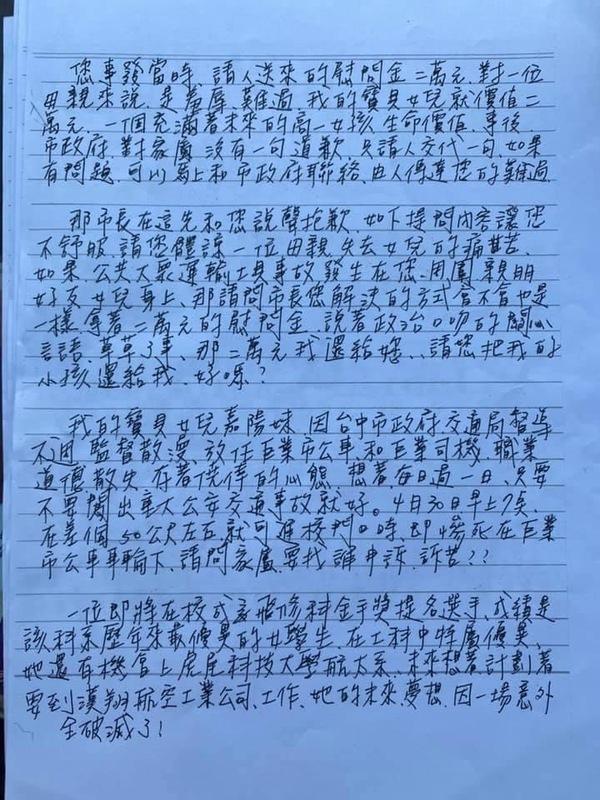 您事發當時、請人送來的慰問金二萬元、對一位
母親來說、是羞辱、難過、我的寶貝女兒就價值二
萬元、一個充滿著未來的高一女孩、生命價值、事後、
市政府、對家屬、沒有一句道歉、只請人交代一句、如果
有問題、可以馬上和市政府聯絡、由人傳達您的難過、
那市長在這先和您說聲抱歉、如下提問內容讓您
不舒服、請您體諒一位母親失去女兒的痛苦、
如果、公共大眾運輸工具事故發生在您、周圍親朋
好友女兒身上、那請問市長您解決的方式會不會也是
一樣、拿著二萬元的慰問金、說著政治口吻的關心
言語、草草了事、那二萬元我還給您、、請您把我的
小孩還給我、好嗎？
我的寶貝女兒嘉陽妹、因台中市政府交通局督導
不週、監督散漫、放任巨業市公車、和巨業司機、職業
道德散失、存著僥倖的心態、想著每日過一日、只要
不要鬧出重大公安交通事故就好。4月30日早上7點、
在差個50公尺左右、就可進校門口時、即慘死在巨業
市公車車輪下、請問家屬要找誰申訴、訴苦？？
一位即將在校式為飛修科金手獎提名選手、成績是
該科系歷年來最優異的女學生、在工科中特屬優異、
她還有機會上虎尾科技大學航太系、未來想著計劃著
要到漢翔航空工業公司、工作、她的未來、夢想、因一場意外
全破滅了！